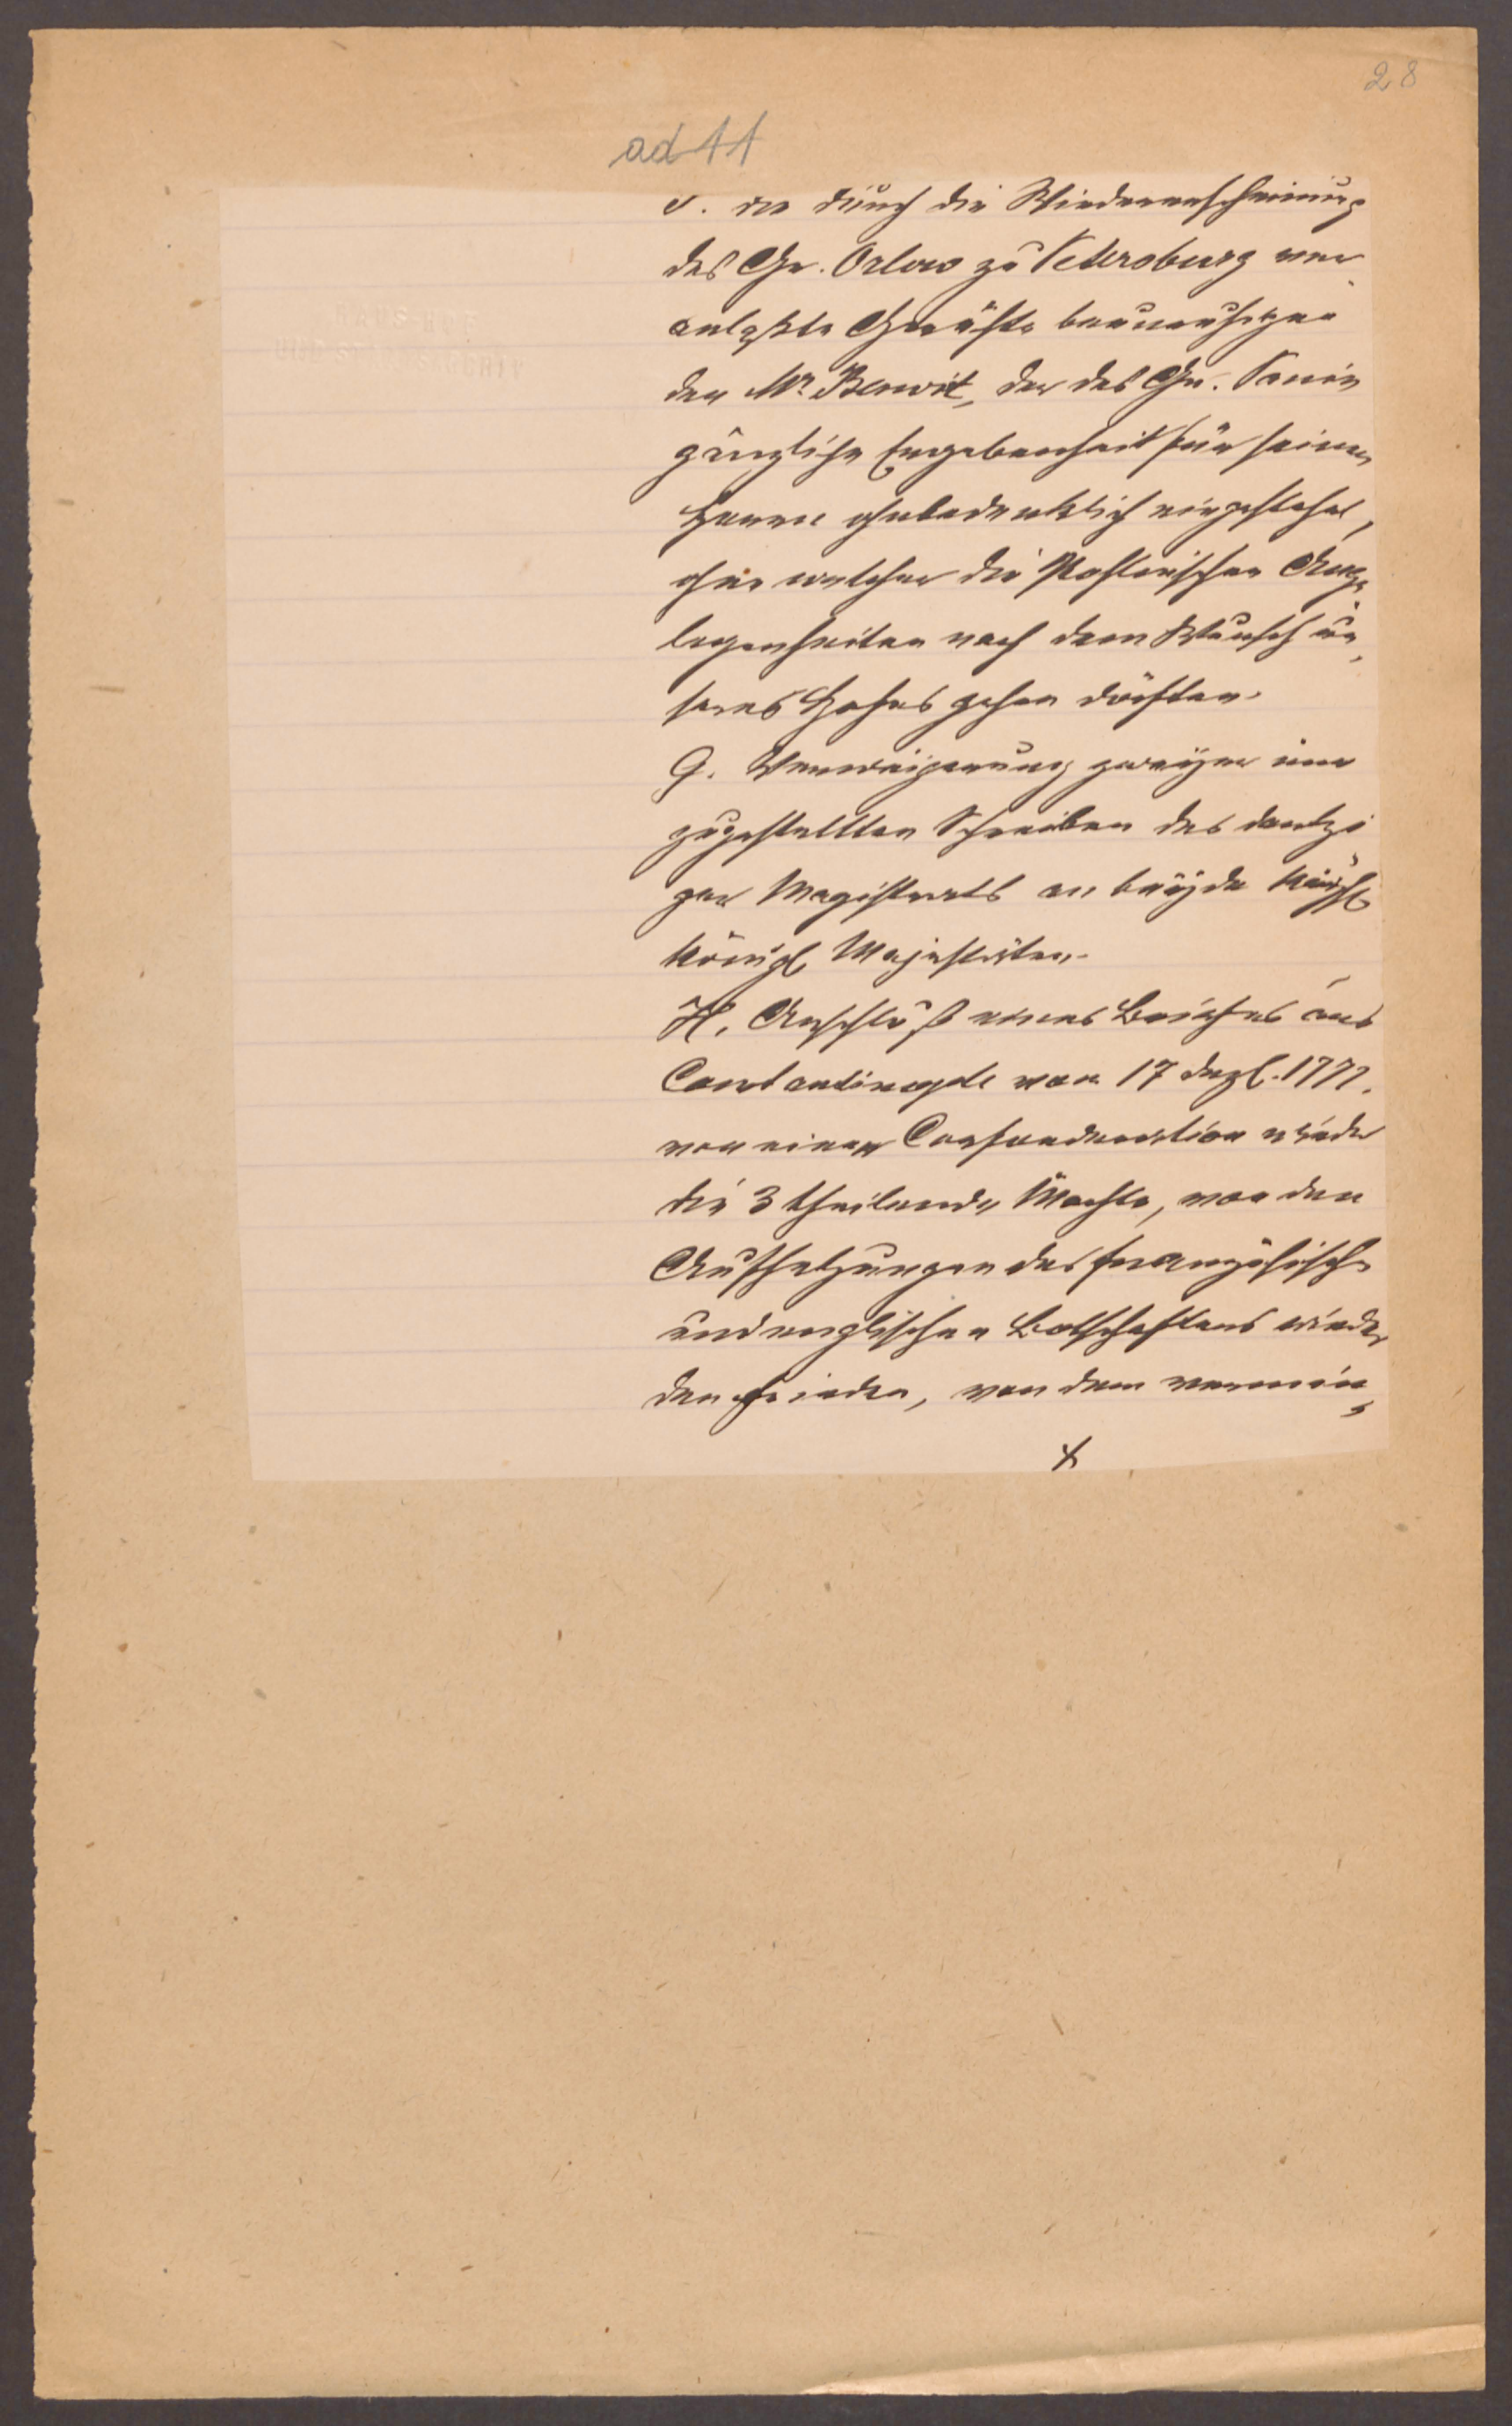 28
ad 11
d. die durch die Wiedererscheinung
des Gr. Orlow zu Petersburg ver-
anlaßte Gerüchte beunruhigen
den Mr Benoit, der des Gr. Panin
gänzliche Ergebenheit für seinen
Herrn ohnbedenklich eingestehet,
ohne welcher die Pohlnischen Ange-
legenheiten nach dem Wunsch un-
seres Hofes gehen dörften.
G. Verweigerung zweyer ime
zugestellten Schreiben des dantzi-
ger Magistrats an beyde Kaÿsl
Königl Majestäten.
H. Anschluß eines Briefes aus
Constantinople von 17 dezb. 1777.
von einer Confoederation wieder
die 3 theilende Mächte, von den
Aufhetzungen des französisch
und englischen Botschafters wieder
den Frieden, von dem vermin-